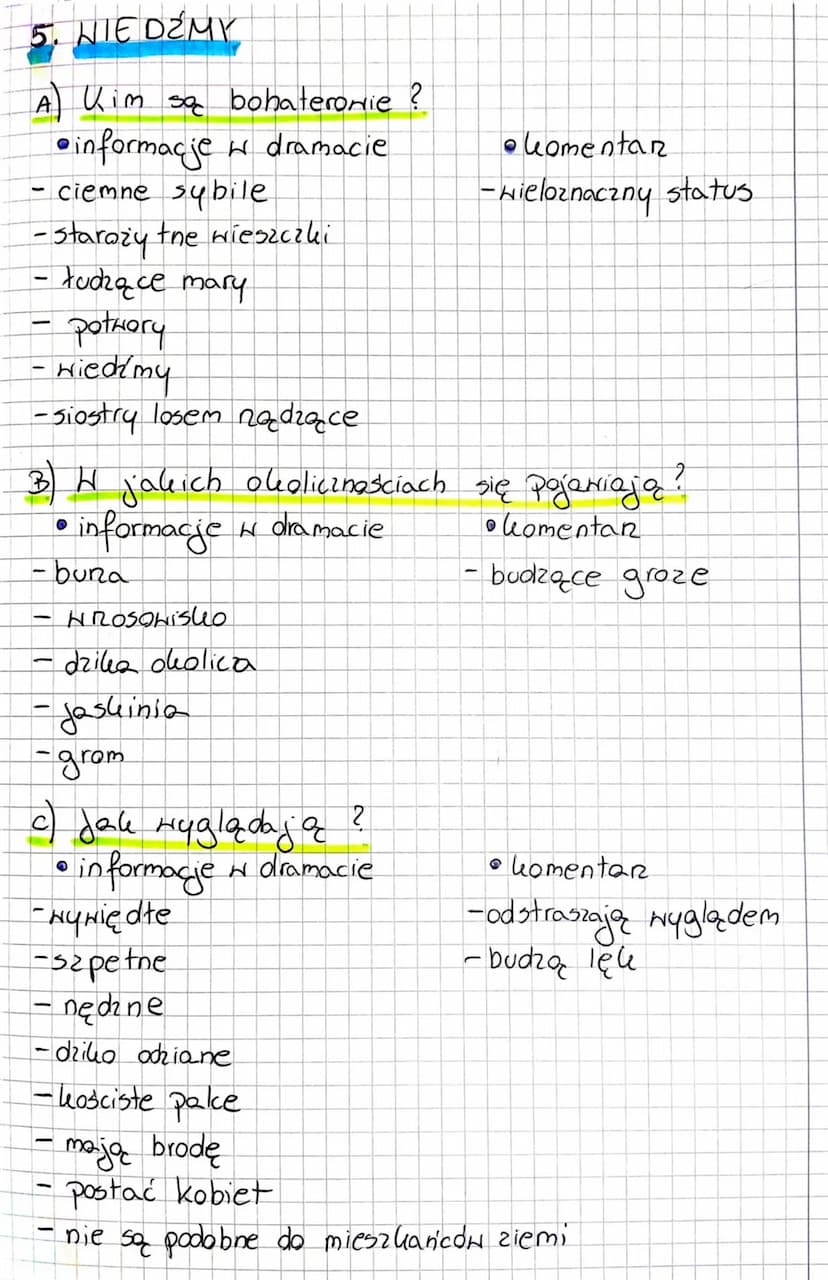 5. WIEDŹMY
A) Kim są bohaterowie?
• informacje w dramacie • komentarz
- ciemne sybile - wieloznaczny status
- starożytne wieszczki
- łudzące mary
- potwory
- wiedźmy
- siostry losem rządzące
B) W jakich okolicznościach się pojawiają?
• informacje w dramacie • komentarz
- burza - budzące groze
- wrzosowisko
- dzika okolica
- jaskinia
- grom
C) Jak wyglądają?
• informacje w dramacie • komentarz
- wywiędłe - odstraszają wyglądem
- szpetne - budzą lęk
- nędzne
- dziko odziane
- kościste palce
- mają brodę
- postać kobiet
- nie są podobne do mieszkańców ziemi